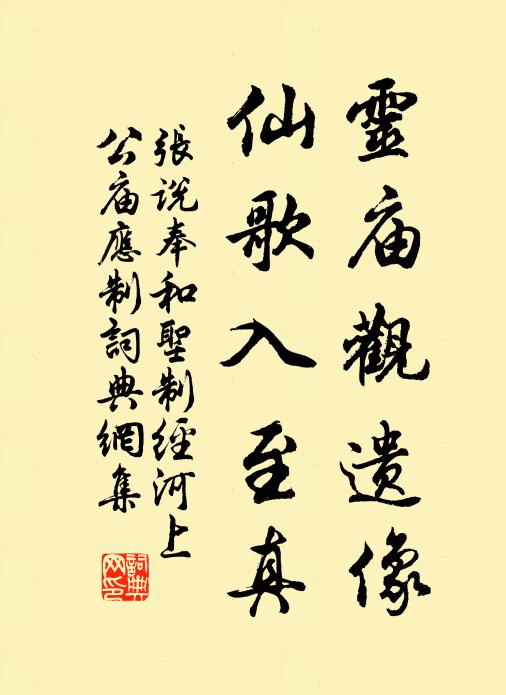 靈庙觀遗像
仙歌入至真
張说奉和聖制經河上
公庙應制詞典網集
詞典
网印